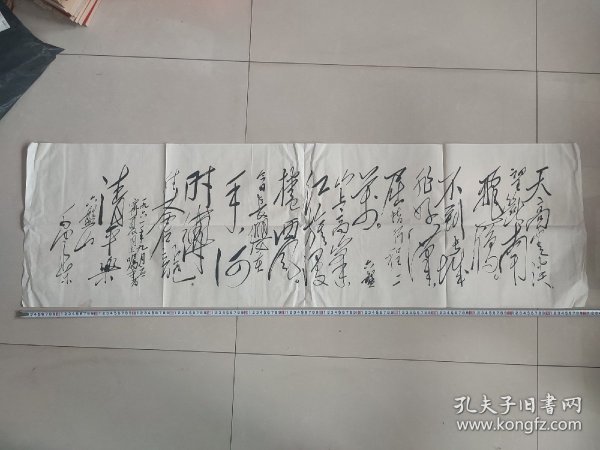 天高云淡
望断南
飞雁。
不到长城
非好汉
屈指行程二
万。
六盘
山上高峰
红旗漫
卷西风。
今日长缨在
手，何
时缚
住苍龙。
一九六一年九月
书
清平乐
六盘山
毛泽东
孔夫子旧书网
www.kongfz.com